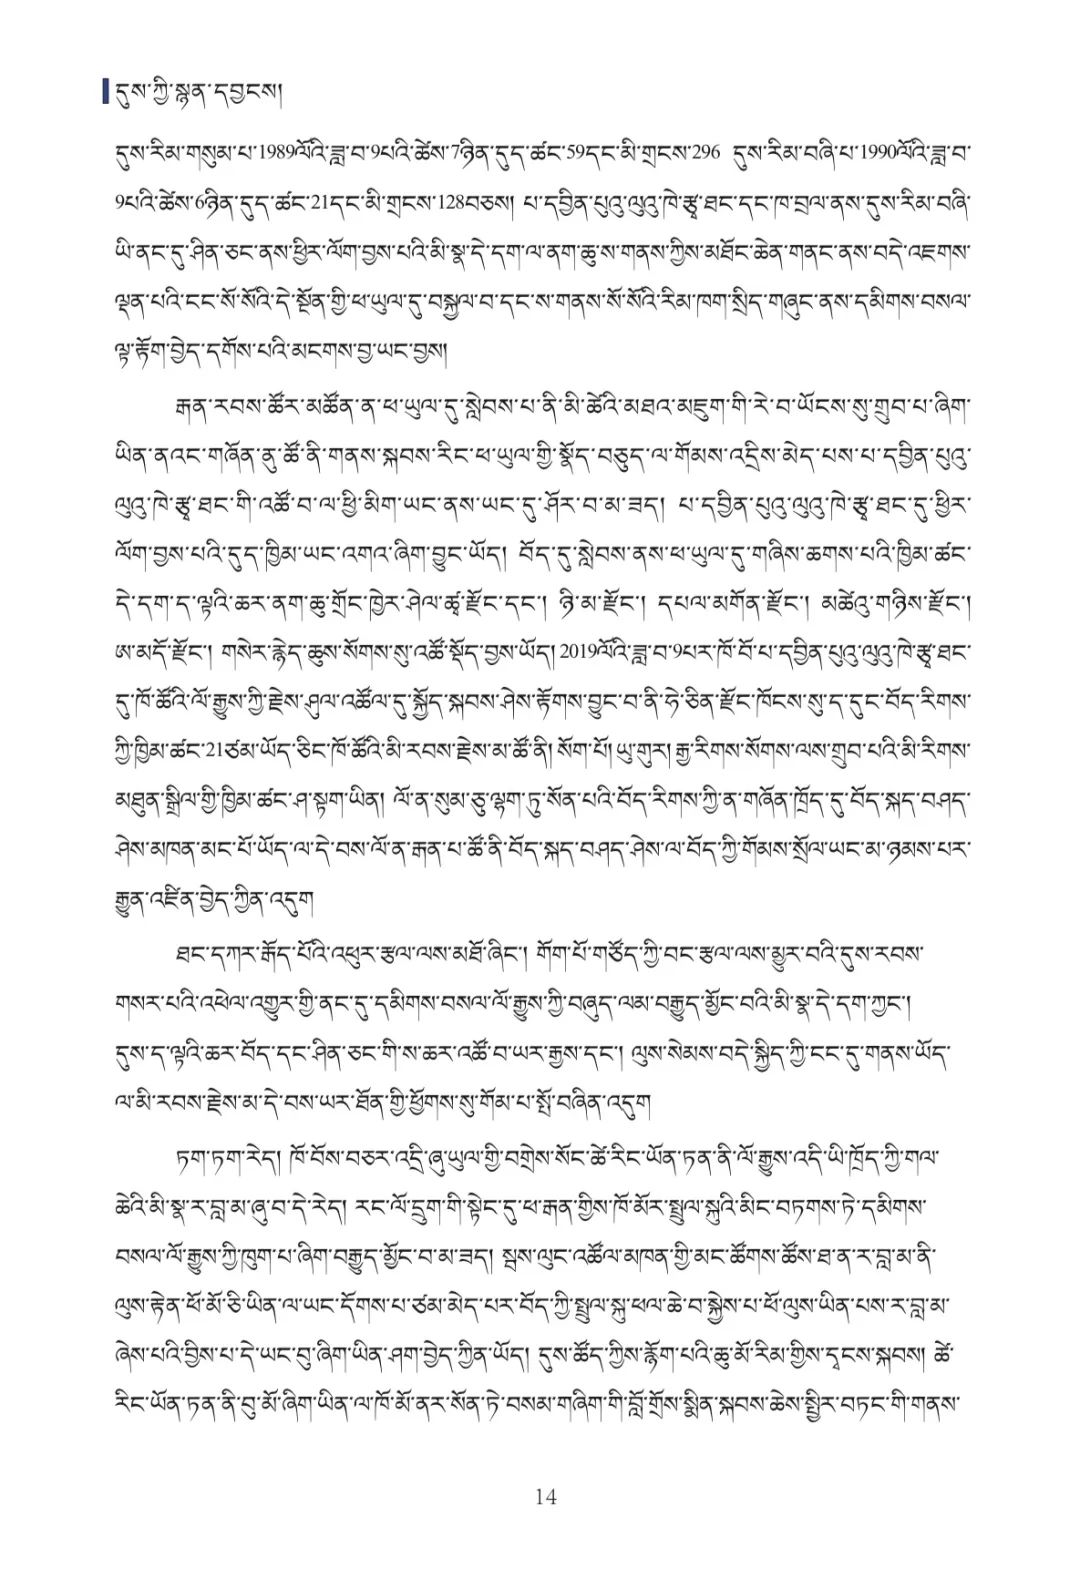 དུས་ཀྱི་སྙན་དབྱངས།
དུས་རིམ་གསུམ་པ་1989ལོའི་ཟླ་བ་9པའི་ཚེས་7ཉིན་དུད་ཚང་59དང་མི་གྲངས་296 དུས་རིམ་བཞི་པ་1990ལོའི་ཟླ་བ་
9པའི་ཚེས་6ཉིན་དུད་ཚང་21དང་མི་གྲངས་128བཅས། པ་དབྱིན་པུའུ་ལུའུ་ཁེ་རྩྭ་ཐང་དང་ཁ་བྲལ་ནས་དུས་རིམ་བཞི་
ཡི་ནང་དུ་ཤིན་ཅང་ནས་ཕྱིར་ལོག་བྱས་པའི་མི་སྣ་དེ་དག་ལ་ནག་ཆུ་ས་གནས་ཀྱིས་མཐོང་ཆེན་གནང་ནས་བདེ་འཇགས་
ལྡན་པའི་ངང་སོ་སོའི་དེ་སྔོན་གྱི་ཕ་ཡུལ་དུ་བསྐྱལ་བ་དང་ས་གནས་སོ་སོའི་རིམ་ཁག་སྲིད་གཞུང་ནས་དམིགས་བསལ་
ལྟ་རྟོག་བྱེད་དགོས་པའི་མངགས་བྱ་ཡང་བྱས།
རྒན་རབས་ཚོར་མཚོན་ན་ཕ་ཡུལ་དུ་སླེབས་པ་ནི་མི་ཚེའི་མཐའ་མཇུག་གི་རེ་བ་ཡོངས་སུ་གྲུབ་པ་ཞིག་
ཡིན་ནའང་གཞོན་ནུ་ཚོ་ནི་གནས་སྐབས་རིང་ཕ་ཡུལ་གྱི་སྣོད་བཅུད་ལ་གོམས་འདྲིས་མེད་པས་པ་དབྱིན་པུའུ་
ལུའུ་ཁེ་རྩྭ་ཐང་གི་འཚོ་བ་ལ་ཕྱི་མིག་ཡང་ནས་ཡང་དུ་ཤོར་བ་མ་ཟད། པ་དབྱིན་པུའུ་ལུའུ་ཁེ་རྩྭ་ཐང་དུ་ཕྱིར་
ལོག་བྱས་པའི་དུད་ཁྱིམ་ཡང་འགའ་ཞིག་བྱུང་ཡོད། བོད་དུ་སླེབས་ནས་ཕ་ཡུལ་དུ་གཞིས་ཆགས་པའི་ཁྱིམ་ཚང་
དེ་དག་ད་ལྟའི་ཆར་ནག་ཆུ་གྲོང་ཁྱེར་ཤེལ་ཚྭ་རྫོང་དང་། ཉི་མ་རྫོང་། དཔལ་མགོན་རྫོང་། མཚེའུ་གཉིས་རྫོང་།
ཨ་མདོ་རྫོང་། གསེར་རྙེད་ཆུས་སོགས་སུ་འཚོ་སྡོད་བྱས་ཡོད། 2019ལོའི་ཟླ་བ་9པར་ཁོ་བོ་པ་དབྱིན་པུའུ་ལུའུ་ཁེ་རྩྭ་ཐང་
དུ་ཁོ་ཚོའི་ལོ་རྒྱུས་ཀྱི་རྗེས་ཤུལ་འཚོལ་དུ་སྐྱོད་སྐབས་ཤེས་རྟོགས་བྱུང་བ་ནི་ཧེ་ཅིན་རྫོང་ཁོངས་སུ་ད་དུང་བོད་རིགས་
ཀྱི་ཁྱིམ་ཚང་21ཙམ་ཡོད་ཅིང་ཁོ་ཚོའི་མི་རབས་རྗེས་མ་ཚོ་ནི། སོག་པོ། ཡུ་གུར། རྒྱ་རིགས་སོགས་ལས་གྲུབ་པའི་མི་རིགས་
མཐུན་སྒྲིལ་གྱི་ཁྱིམ་ཚང་ཤ་སྟག་ཡིན། ལོ་ན་སུམ་ཅུ་ལྷག་ཏུ་སོན་པའི་བོད་རིགས་ཀྱི་ན་གཞོན་ཁྲོད་དུ་བོད་སྐད་བཤད་
ཤེས་མཁན་མང་པོ་ཡོད་ལ་དེ་བས་ལོ་ན་རྒན་པ་ཚོ་ནི་བོད་སྐད་བཤད་ཤེས་ལ་བོད་ཀྱི་གོམས་སྲོལ་ཡང་མ་ཉམས་པར་
རྒྱུན་འཛིན་བྱེད་ཀྱིན་འདུག
ཐང་དཀར་རྒོད་པོའི་འཕུར་རྩལ་ལས་མཐོ་ཞིང་། གོག་པོ་གཙོད་ཀྱི་བང་རྩལ་ལས་མྱུར་བའི་དུས་རབས་
གསར་པའི་འཕེལ་འགྱུར་གྱི་ནང་དུ་དམིགས་བསལ་ལོ་རྒྱུས་ཀྱི་བཞུད་ལམ་བརྒྱུད་མྱོང་བའི་མི་སྣ་དེ་དག་ཀྱང་།
དུས་ད་ལྟའི་ཆར་བོད་དང་ཤིན་ཅང་གི་ས་ཆར་འཚོ་བ་ཡར་རྒྱས་དང་། ལུས་སེམས་བདེ་སྐྱིད་ཀྱི་ངང་དུ་གནས་ཡོད་
ལ་མི་རབས་རྗེས་མ་དེ་བས་ཡར་ཐོན་གྱི་ཕྱོགས་སུ་གོམ་པ་སྤོ་བཞིན་འདུག
ཏག་ཏག་རེད། ཁོ་བོས་བཅར་འདྲི་ཞུ་ཡུལ་གྱི་བགྲེས་སོང་ཚེ་རིང་ཡོན་ཏན་ནི་ལོ་རྒྱུས་འདི་ཡི་ཁྲོད་ཀྱི་གལ་
ཆེའི་མི་སྣ་ར་བླ་མ་ཞུ་བ་དེ་རེད། རང་ལོ་དྲུག་གི་སྟེང་དུ་ཕ་རྒན་གྱིས་ཁོ་མོར་སྤྲུལ་སྐུའི་མིང་བཏགས་ཏེ་དམིགས་
བསལ་ལོ་རྒྱུས་ཀྱི་ཁུག་པ་ཞིག་བརྒྱུད་མྱོང་བ་མ་ཟད། སྦས་ལུང་འཚོལ་མཁན་གྱི་མང་ཚོགས་ཚོས་ཐ་ན་ར་བླ་མ་ནི་
ལུས་རྟེན་ཕོ་མོ་ཅི་ཡིན་ལ་ཡང་དོགས་པ་ཙམ་མེད་པར་བོད་ཀྱི་སྤྲུལ་སྐུ་ཕལ་ཆེ་བ་སྐྱེས་པ་ཕོ་ལུས་ཡིན་པས་ར་བླ་མ་
ཞེས་པའི་བྱིས་པ་དེ་ཡང་བུ་ཞིག་ཡིན་ཤག་བྱེད་ཀྱིན་ཡོད། དུས་ཚོད་ཀྱིས་རྙོག་པའི་ཆུ་མོ་རིམ་གྱིས་དྭངས་སྐབས། ཚེ་
རིང་ཡོན་ཏན་ནི་བུ་མོ་ཞིག་ཡིན་ལ་ཁོ་མོ་ནར་སོན་ཏེ་བསམ་གཞིག་གི་བློ་གྲོས་སྨིན་སྐབས་ཆེས་སྤྱིར་བཏང་གི་གནས་
14